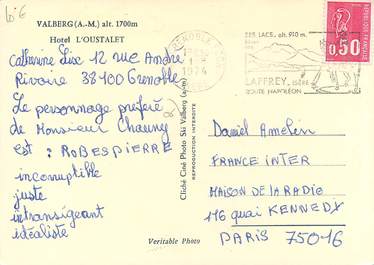 10 €
VALBERG (A.-M.) alt. 1700m
Hotel L'OUSTALET
Catherine Lise 12 rue André
Rivoire 38100 Grenoble
Le personnage préféré
de Monsieur Chauny
est : ROBESPIERRE
incorruptible
juste
intransigeant
idéaliste
Veritable Photo
Cliché Ciné Photo Ski Valberg (A-M)
REPRODUCTION INTERDITE
GRENOBLE
1974
SES LACS. alt. 910 m.
LAFFREY. ISÈRE
ROUTE NAPOLÉON
0,50
Daniel Amelin
FRANCE INTER
MAISON DE LA RADIO
116 quai KENNEDY
PARIS 75016